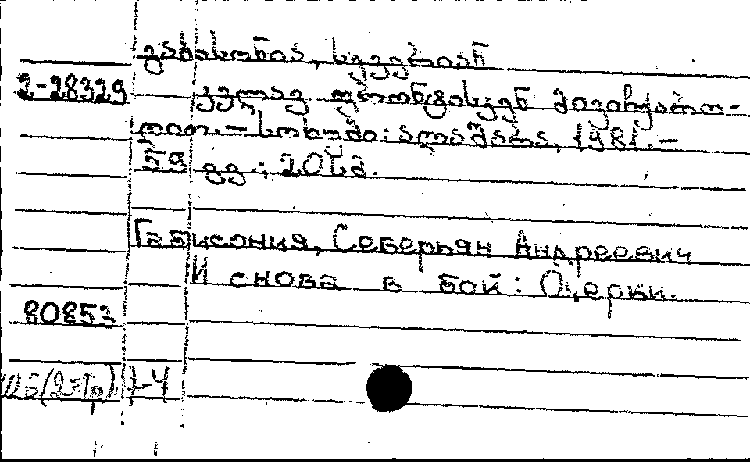 გაბისონია, სევერიან
2-28329 კვლავ ფრონტისკენ მივიჩქარო-
დით. – სოხუმი: ალაშარა, 1981. –
59 გვ.; 20სმ.
Габисония, Северьян Андреевич
И снова в бой: Очерки.
80853